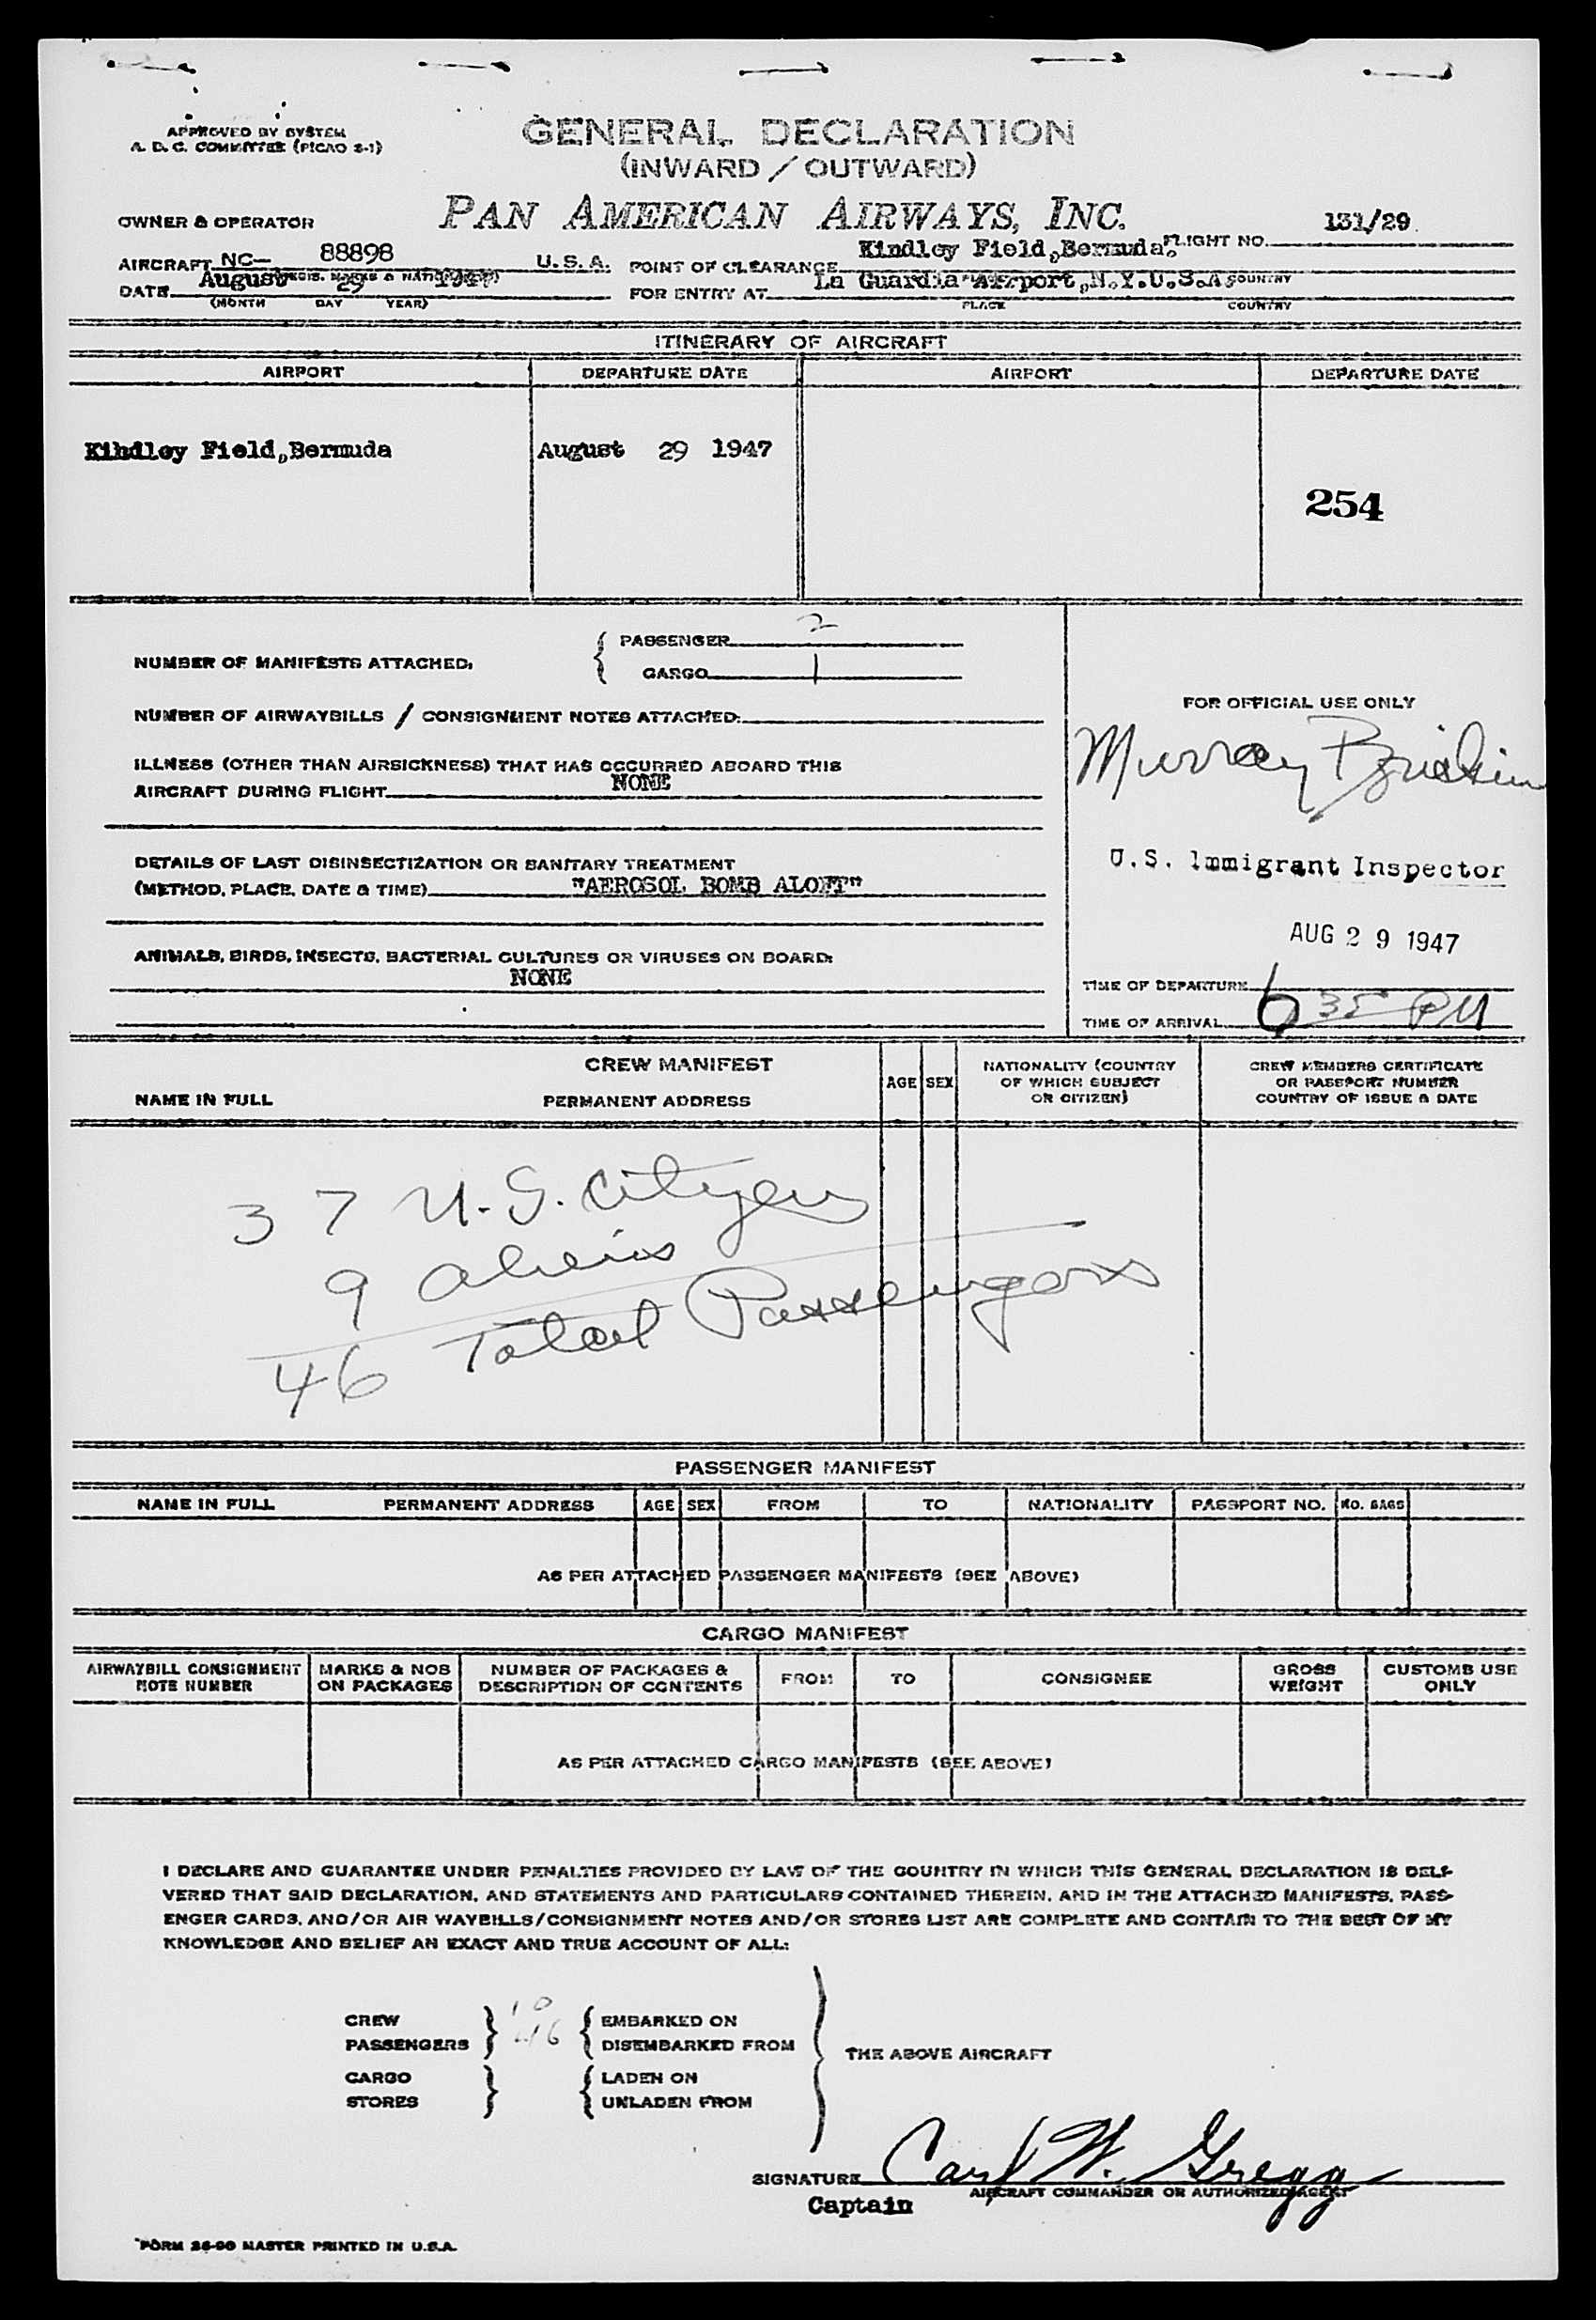 APPROVED BY SYSTEM
A. D. C. COMMITTEE (PICAO S-1)
GENERAL DECLARATION
(INWARD / OUTWARD)
OWNER & OPERATOR
PAN AMERICAN AIRWAYS, INC.
FLIGHT NO. 131/29
AIRCRAFT NC- 88898 U.S.A.
POINT OF CLEARANCE Kindley Field, Bermuda.
COUNTRY
DATE August 29 1947
FOR ENTRY AT La Guardia Airport, N.Y.U.S.A
(MONTH DAY YEAR)
PLACE COUNTRY
ITINERARY OF AIRCRAFT
AIRPORT DEPARTURE DATE AIRPORT DEPARTURE DATE
Kindley Field, Bermuda August 29 1947
254
NUMBER OF MANIFESTS ATTACHED.
PASSENGER 2
CARGO 1
NUMBER OF AIRWAYBILLS / CONSIGNMENT NOTES ATTACHED:
ILLNESS (OTHER THAN AIRSICKNESS) THAT HAS OCCURRED ABOARD THIS
AIRCRAFT DURING FLIGHT NONE
DETAILS OF LAST DISINSECTIZATION OR SANITARY TREATMENT
(METHOD, PLACE, DATE & TIME) "AEROSOL BOMB ALOFT"
ANIMALS, BIRDS, INSECTS, BACTERIAL CULTURES OR VIRUSES ON BOARD:
NONE
FOR OFFICIAL USE ONLY
Murray
U.S. Immigrant Inspector
AUG 29 1947
TIME OF DEPARTURE
TIME OF ARRIVAL 6 35 PM
CREW MANIFEST
NAME IN FULL PERMANENT ADDRESS
AGE SEX
NATIONALITY (COUNTRY
OF WHICH SUBJECT
OR CITIZEN)
CREW MEMBERS CERTIFICATE
OR PASSPORT NUMBER
COUNTRY OF ISSUE & DATE
37 U.S. Citizens
9 aliens
46 Total Passengers
PASSENGER MANIFEST
NAME IN FULL PERMANENT ADDRESS AGE SEX FROM TO NATIONALITY PASSPORT NO. NO. BAGS
AS PER ATTACHED PASSENGER MANIFESTS (SEE ABOVE)
CARGO MANIFEST
AIRWAYBILL CONSIGNMENT
NOTE NUMBER
MARKS & NOS
ON PACKAGES
NUMBER OF PACKAGES &
DESCRIPTION OF CONTENTS
FROM TO CONSIGNEE
GROSS
WEIGHT
CUSTOMS USE
ONLY
AS PER ATTACHED CARGO MANIFESTS (SEE ABOVE)
I DECLARE AND GUARANTEE UNDER PENALTIES PROVIDED BY LAW OF THE COUNTRY IN WHICH THIS GENERAL DECLARATION IS DELI-
VERED THAT SAID DECLARATION, AND STATEMENTS AND PARTICULARS CONTAINED THEREIN, AND IN THE ATTACHED MANIFESTS, PASS-
ENGER CARDS, AND/OR AIR WAYBILLS/CONSIGNMENT NOTES AND/OR STORES LIST ARE COMPLETE AND CONTAIN TO THE BEST OF MY
KNOWLEDGE AND BELIEF AN EXACT AND TRUE ACCOUNT OF ALL:
CREW 10 EMBARKED ON
PASSENGERS 46 DISEMBARKED FROM
THE ABOVE AIRCRAFT
CARGO LADEN ON
STORES UNLADEN FROM
SIGNATURE Carl W. Gregg
AIRCRAFT COMMANDER OR AUTHORIZED AGENT
Captain
FORM 26-00 MASTER PRINTED IN U.S.A.